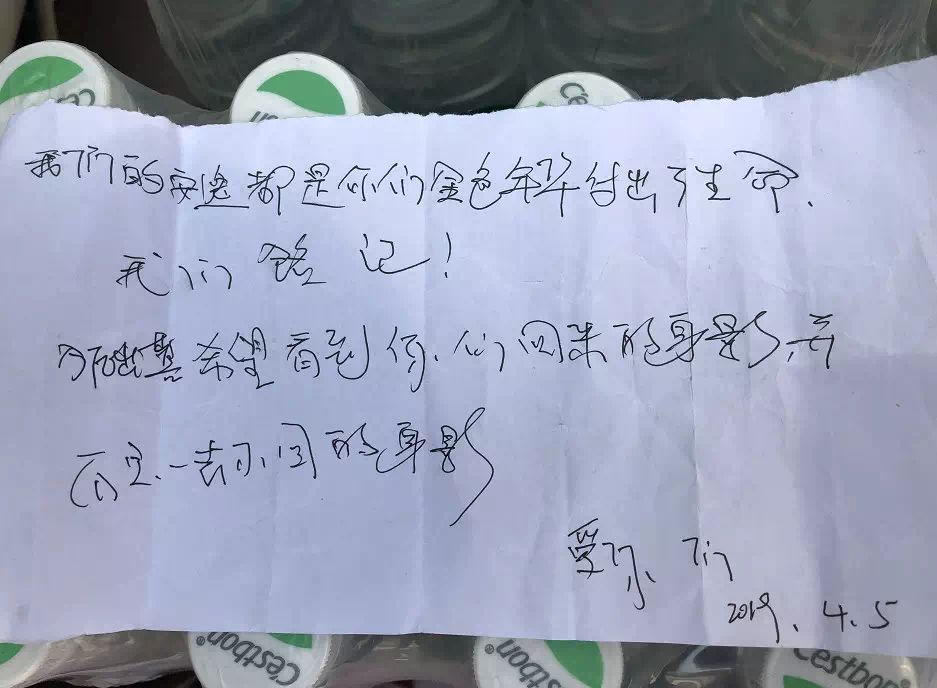 Cestbon
我们的安逸都是你们金色年华付出了生命.
我们铭记!
今后出警希望看到你们回来的身影,
不是一去不回的身影
爱你们
2019.4.5
Cestbon®
Cestbon®
Cestbon®